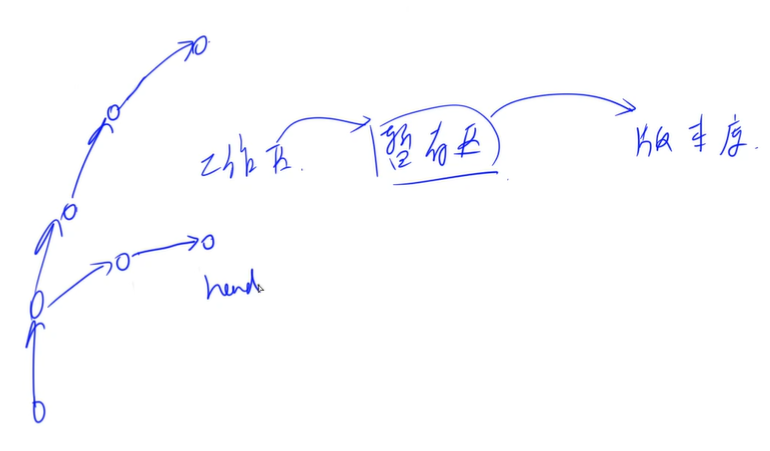 工作区.
暂存区
版本库.
head